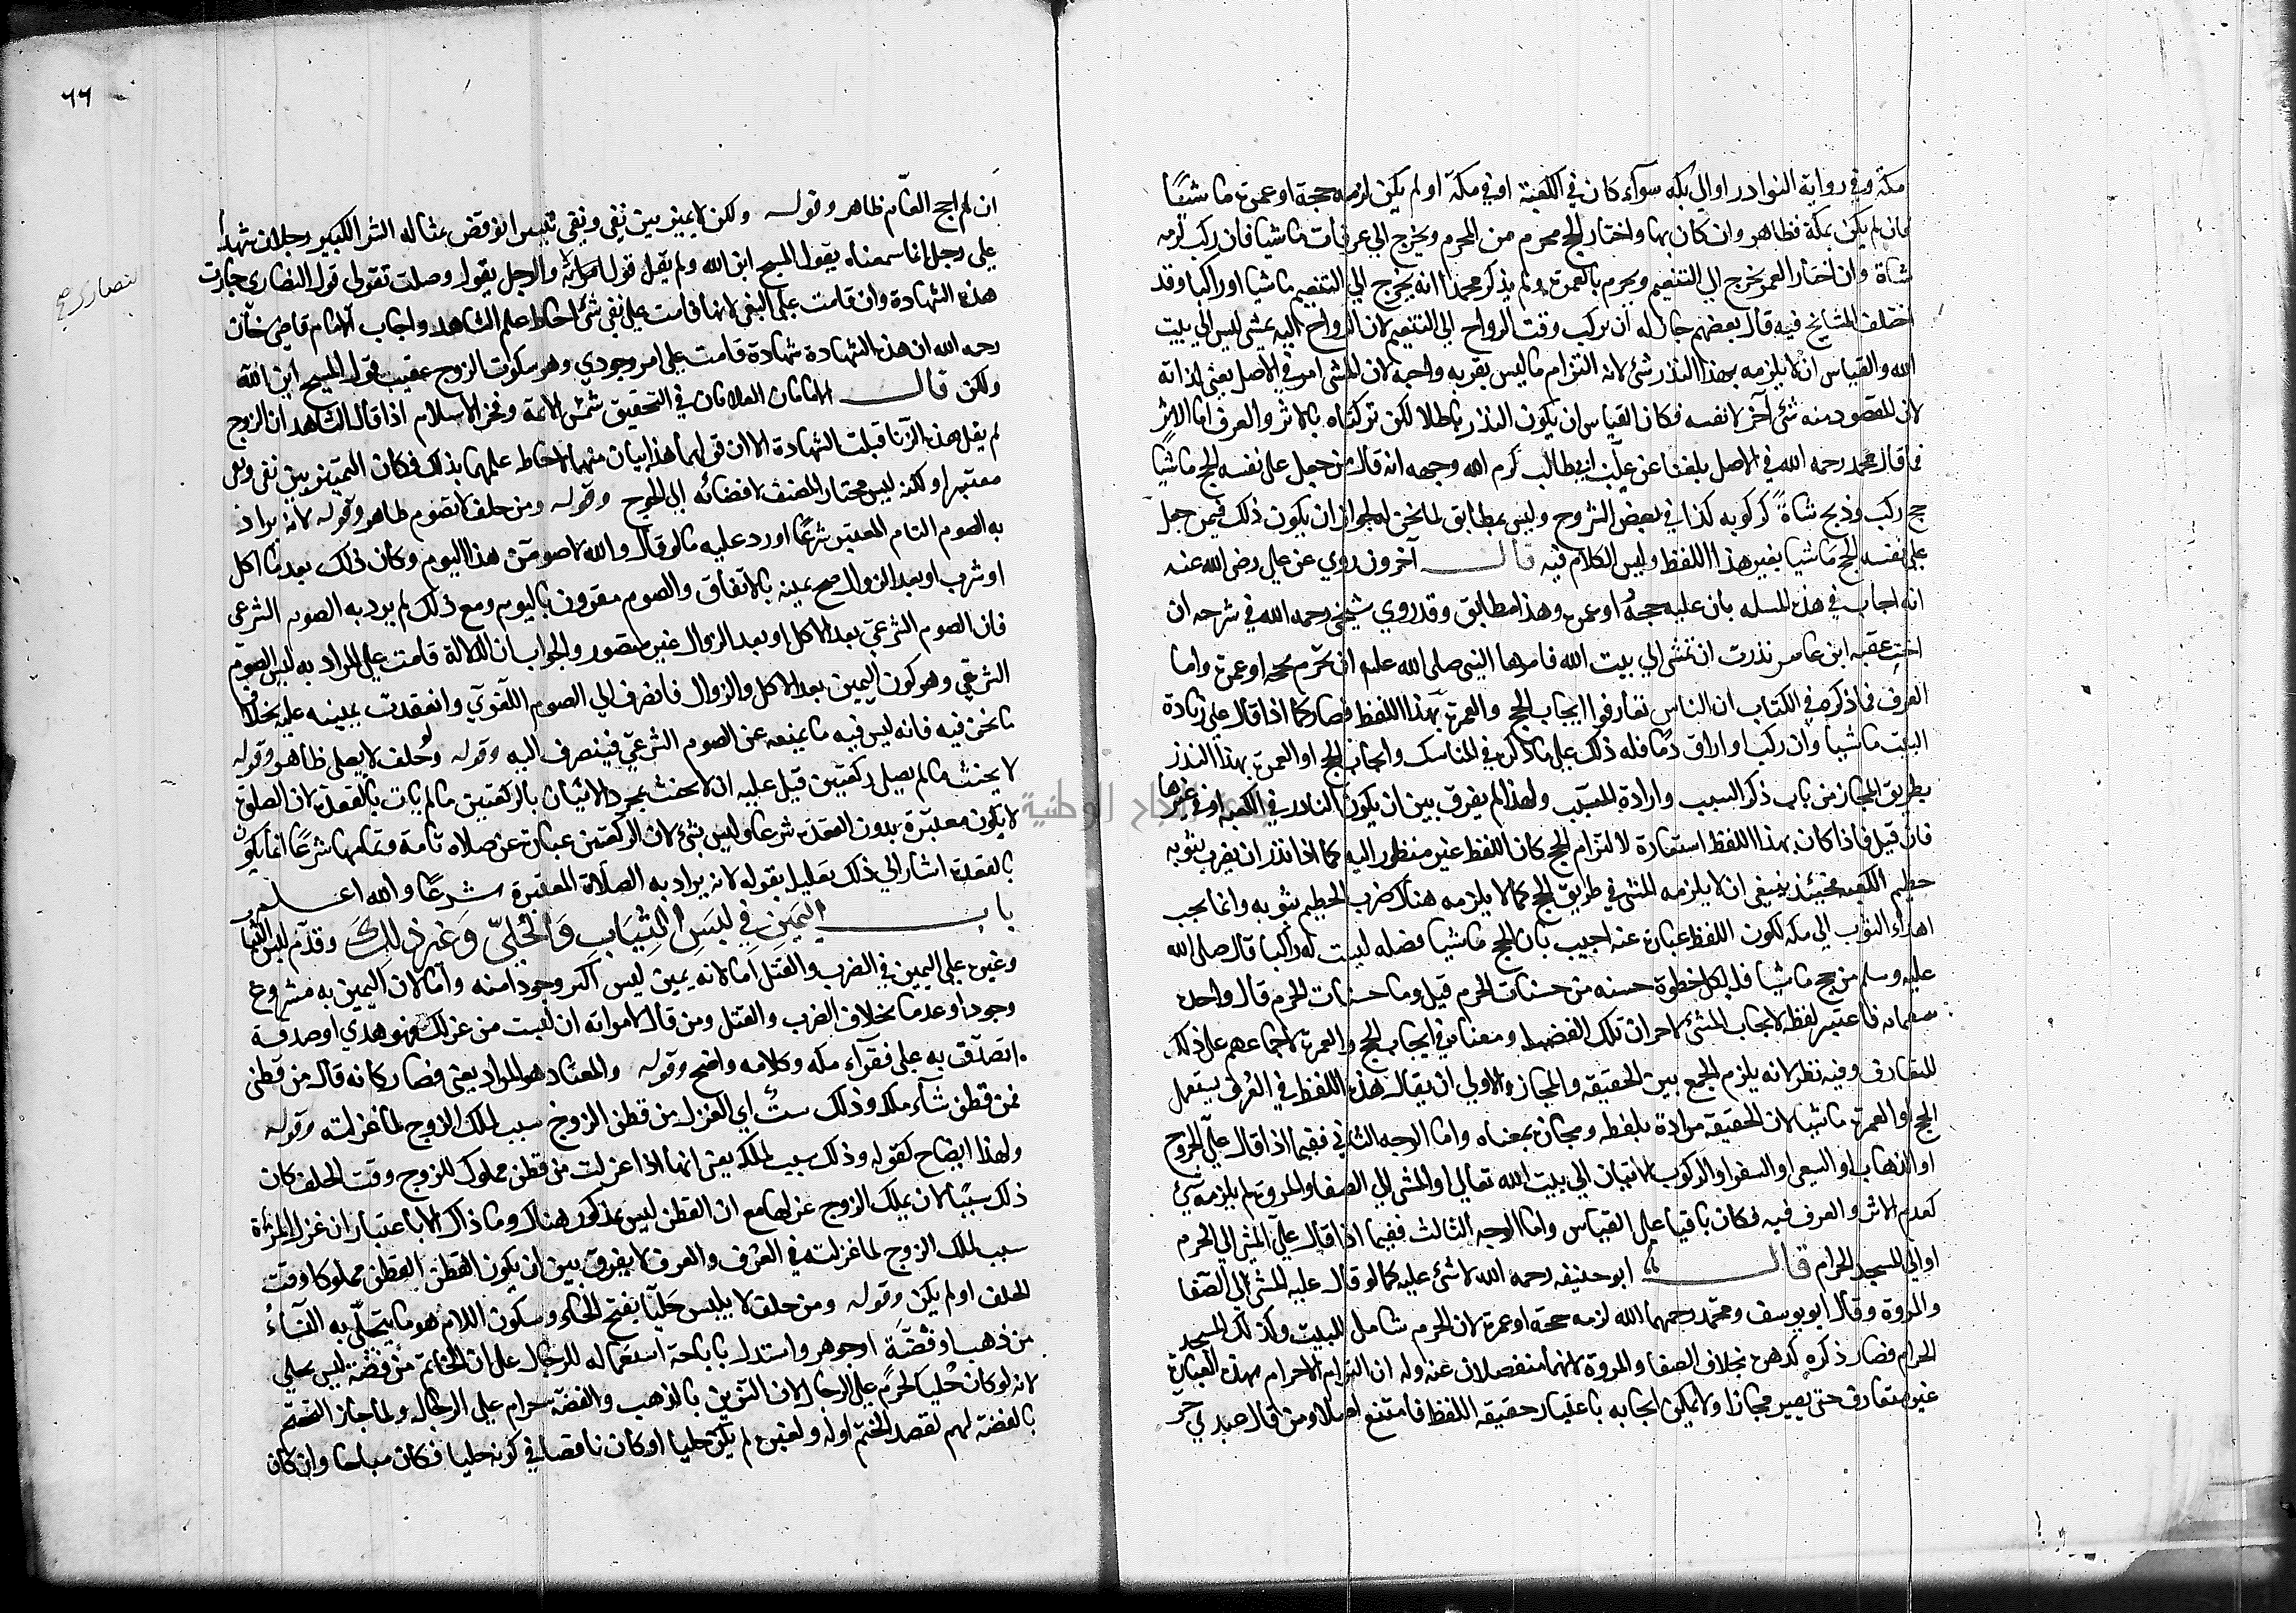 مكة وفي رواية النوادر او الي بكه سوآء كان في الكعبة او في مكة او لم يكن لزمه حجة او عمرة ماشيًا
فان لم يكن بمكة فظاهر وان كان بها واختار الحج محرم من الحرم ويخرج الي عرفات ماشيا فان ركب لزمه
شاة وان اختار العمر يخرج الي التنعيم ويحرم بالعمرة ولم يذكر محمد انه يخرج الي التنعيم ماشيا او راكبا وقد
اختلف المشايخ فيه قال بعضهم جاز له ان يركب وقت الرواح الي التنعيم لان الرواح اليه يمشي ليس الي بيت
الله والقياس ان لا يلزمه بهذا النذر شئ لانه التزام ما ليس بقربه واجبة لان المشي امر في الاصل يعني لذاته
لان المقصود منه شئ آخر لا نفسه فكان القياس ان يكون النذر باطلا لكن تركناه بالاثر والعرف اما الاثر
فما قال محمد رحمه الله في الاصل بلغنا عن علي بن ابي طالب كرم الله وجهه انه قال من جعل علي نفسه الحج ماشيا
حج ركب وذبح شاةً لركوبه كذا في بعض الشروح وليس بمطابق لما نحن له لجواز ان يكون ذلك فيمن جعل
علي نفسه الحج ماشيا بغير هذا اللفظ وليس الكلام فيه قال آخرون روي عن علي رضي الله عنه
انه اجاب في هذه المسله بان عليه حجةً او عمرة وهذا مطابق وقد روي شيخي رحمه الله في شرحه ان
اخت عقبه ابن عامر نذرت ان تمشي الي بيت الله فامرها النبي صلي الله عليه ان تحرم بحجه او عمرة واما
العرف فما ذكره في الكتاب ان الناس تعارفوا ايجاب الحج والعمرة بهذا اللفظ فصار كما اذا قال علي زيادة
البيت ماشيا وان ركب او اراق دما فله ذلك علي ما ذكر في المناسك وايجاب الحج او العمرة بهذا النذر
بطريق المجاز من باب ذكر السبب وارادة المسبب ولهذا لم يفرق بين ان يكون النادر في الكعبه او في غيرها
فان قيل فاذا كان بهذا اللفظ استعارة لالتزام الحج كان اللفظ غير منظور اليه كما اذا نذر ان يضرب بثوبه
حطيم الكعبه فحينئذ ينبغي ان لا يلزمه المشي في طريق الحج كما لا يلزمه هناك ضرب الحطيم بثوبه وانما يجب
اهداء الثوب الي مكه لكون اللفظ عبارة عنه اجيب بان الحج ماشيا فضله ليست له راكبا قال صلي الله
عليه وسلم من حج ماشيا فله بكل خطوة حسنه من حسنات الحرم قيل وما حسنات الحرم قال واحده
بسبعمايه فاعتبر لفظه لايجاب المشئ لاحراز تلك الفضيله ومعناه في ايجاب الحج والعمرة لاجماعهم علي ذلك
للتعارف وفيه نظر لانه يلزم الجمع بين الحقيقه والمجاز والاولي ان يقال هذا اللفظ في العُرف يستعمل
الحج او العمرة ماشيا لان الحقيقه مرادة بلفظه ومجازه بمعناه واما الوجه الثاني ففيما اذا قال علي الخروج
او الذهاب او السعي او السفر او الركوب الاتيان الي بيت الله تعالي او المشي الي الصفا والمروة لم يلزمه شئ
كعدم الاثر والعرف فيه فكان باقيا علي القياس واما الوجه الثالث ففيما اذا قال علي المشي الي الحرم
او الي المسجد الحرام قال ابو حنيفه رحمه الله لا شئ عليه كما لو قال عليه المشي الي الصفا
والمروة وقال ابو يوسف ومحمد رحمهما الله لزمه حجة او عمرة لان الحرم شامل للبيت وكذلك المسجد
الحرام فصار ذكره كذكره بخلاف الصفا والمروة لانهما منفصلان عنه وله ان التزام الاحرام بهذه العبارة
غير متعارف حتي يصير مجازا ولا يمكن ايجابه باعتبار حقيقه اللفظ فامتنع اصلا ومن قال عبدي حر
٦٦
ان لم احج العام ظاهر وقوله ولكن لا يميز بين نفي ونفي تيسيرا نوقض بمثاله السير الكبير رجلان شهدا
علي رجل انا سمعناه يقول المسيح ابن الله ولم يقل قول النصاري والرجل يقول وصلت بقولي قول النصاري جازت
النصاري صح
هذه الشهادة وان قامت علي النفي لانها قامت علي نفي شئ احاط علم الشاهد واجاب الامام قاضي خان
رحمه الله ان هذه الشهادة شهادة قامت علي امر وجودي وهو سكوت الزوج عقيب قوله المسيح ابن الله
ولكن قال الامامان العلامان في التحقيق شمس الائمة وفخر الاسلام اذا قال الشاهد ان الزوج
لم يقل هذه الزنا قبلت الشهادة الا ان قولهما هذا بيان منهما لاحاط علمهما بذلك فكان التميز بين نفي ونفي
معتبرا ولكنه ليس مختار المصنف لافضائه الي الحرج وقوله ومن حلف لا يصوم ظاهر وقوله لانه يراد
به الصوم التام المعتبر شرعًا اورد عليه ما لو قال والله لاصومن هذا اليوم وكان ذلك بعد ما اكل
او شرب او بعد الزوال صح يمينه بالاتفاق والصوم مقرون باليوم ومع ذلك لم يرد به الصوم الشرعي
فان الصوم الشرعي بعد الاكل او بعد الزوال غير متصور والجواب ان الدلالة قامت علي المراد به ليس الصوم
الشرعي وهو كون اليمين بعد الاكل والزوال فانصرف الي الصوم اللغوي وانعقدت يمينه عليه بخلاف
ما نحن فيه فانه ليس فيه ما يمنعه عن الصوم الشرعي فينصرف اليه وقوله ولو حلف لا يصلي ظاهر وقوله
لا يحنث ما لم يصل ركعتين قيل عليه ان لا يحنث بمجرد الاتيان بالركعتين ما لم يات بالقعدة لان الصلوة
لا يكون معتبرة بدون القعدة شرعا وليس بشئ لان الركعتين عبارة عن صلاه تامة وتمامها شرعًا انما يكون
بالقعدة اشار الي ذلك تعليله بقوله لانه يراد به الصلاة المعتبرة شرعًا والله اعلم
باب اليمين في لبس الثياب والحلي وغير ذلك وقدم لبس الثياب
وغيره علي اليمين في الضرب والقتل اما لانه يمين ليس اكثر وجودا منه واما لان اليمين به مشروع
وجودا وعدما بخلاف الضرب والقتل ومن قال لامراته ان لبست من غزلك فهو هدي او صدقة
اتصدق به علي فقرآء مكه وكلامه واضح وقوله والمعتاد هو المراد يعني فصار كانه قال من قطني
فمن قطن شآء ملك وذلك سبب اي الغزل من قطن الزوج سبب لملك الزوج لما غزلته وقوله
ولهذا ايضاح لقوله وذلك سبب لملكه يعني انها اذا غزلت من قطن مملوك للزوج وقت الحلف كان
ذلك سببًا لان يملك الزوج غزلها مع ان القطن ليس بمذكور هناك وما ذاك الا باعتبار ان غزل المرأة
سبب لملك الزوج لما غزلته في العرف والعرف لا يفرق بين ان يكون القطن القطن مملوكا وقت
الحلف او لم يكن وقوله ومن حلف لا يلبس حليا بفتح الحاء وسكون اللام هو ما يتحلي به النسآءُ
من ذهب او فضة او جوهر واستدل باباحة استعماله للرجال علي ان الخاتم من فضة ليس بحلي
لانه لو كان حليا لحرم علي الرجال لان التزين بالذهب والفضة حرام علي الرجال ولما جاز التختم
بالفضة لهم لقصد الختم اوله ولغيره لم يكن حليا او كان ناقصا في كونه حليا فكان مباحا وان كان